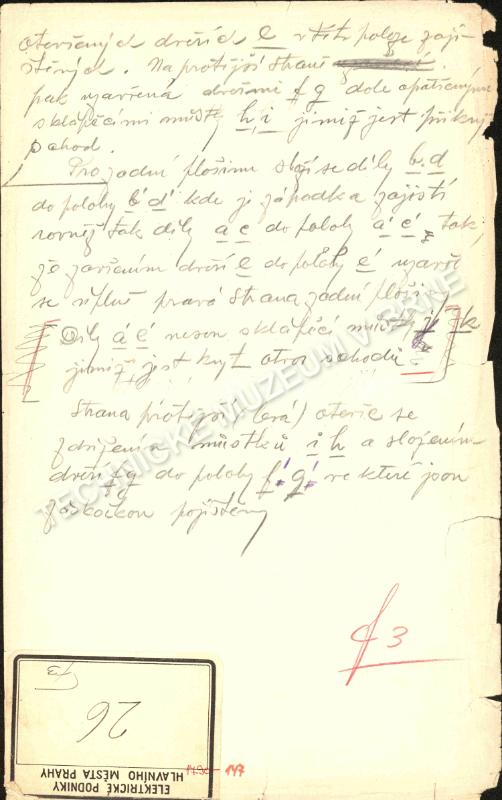 otevřených dveřích e v této poloze zaji-
štěných. Na protější straně
pak uzavřená dveřmi f g dole opatřenými
sklápěcími můstky h i jimiž jest přikryt
schod.
Pro zadní plošinu složí se díly b. d
do polohy b' d' kde je západka zajistí
rovněž tak díly a c do polohy á ć, tak,
že zavřením dveří e do polohy e' uzavře
se úplně pravá strana zadní plošiny
Díly á ć nesou sklápěcí můstky j k
jimiž jest kryt otvor schodů
Strana protější (levá) otevře se
zdvižením můstků i h a složením
dveří f g do polohy f' g' ve které jsou
záskočkou pojištěny
f 3
TECHNICKÉ MUZEUM V BRNĚ
26
ELEKTRICKÉ PODNIKY
HLAVNÍHO MĚSTA PRAHY
147